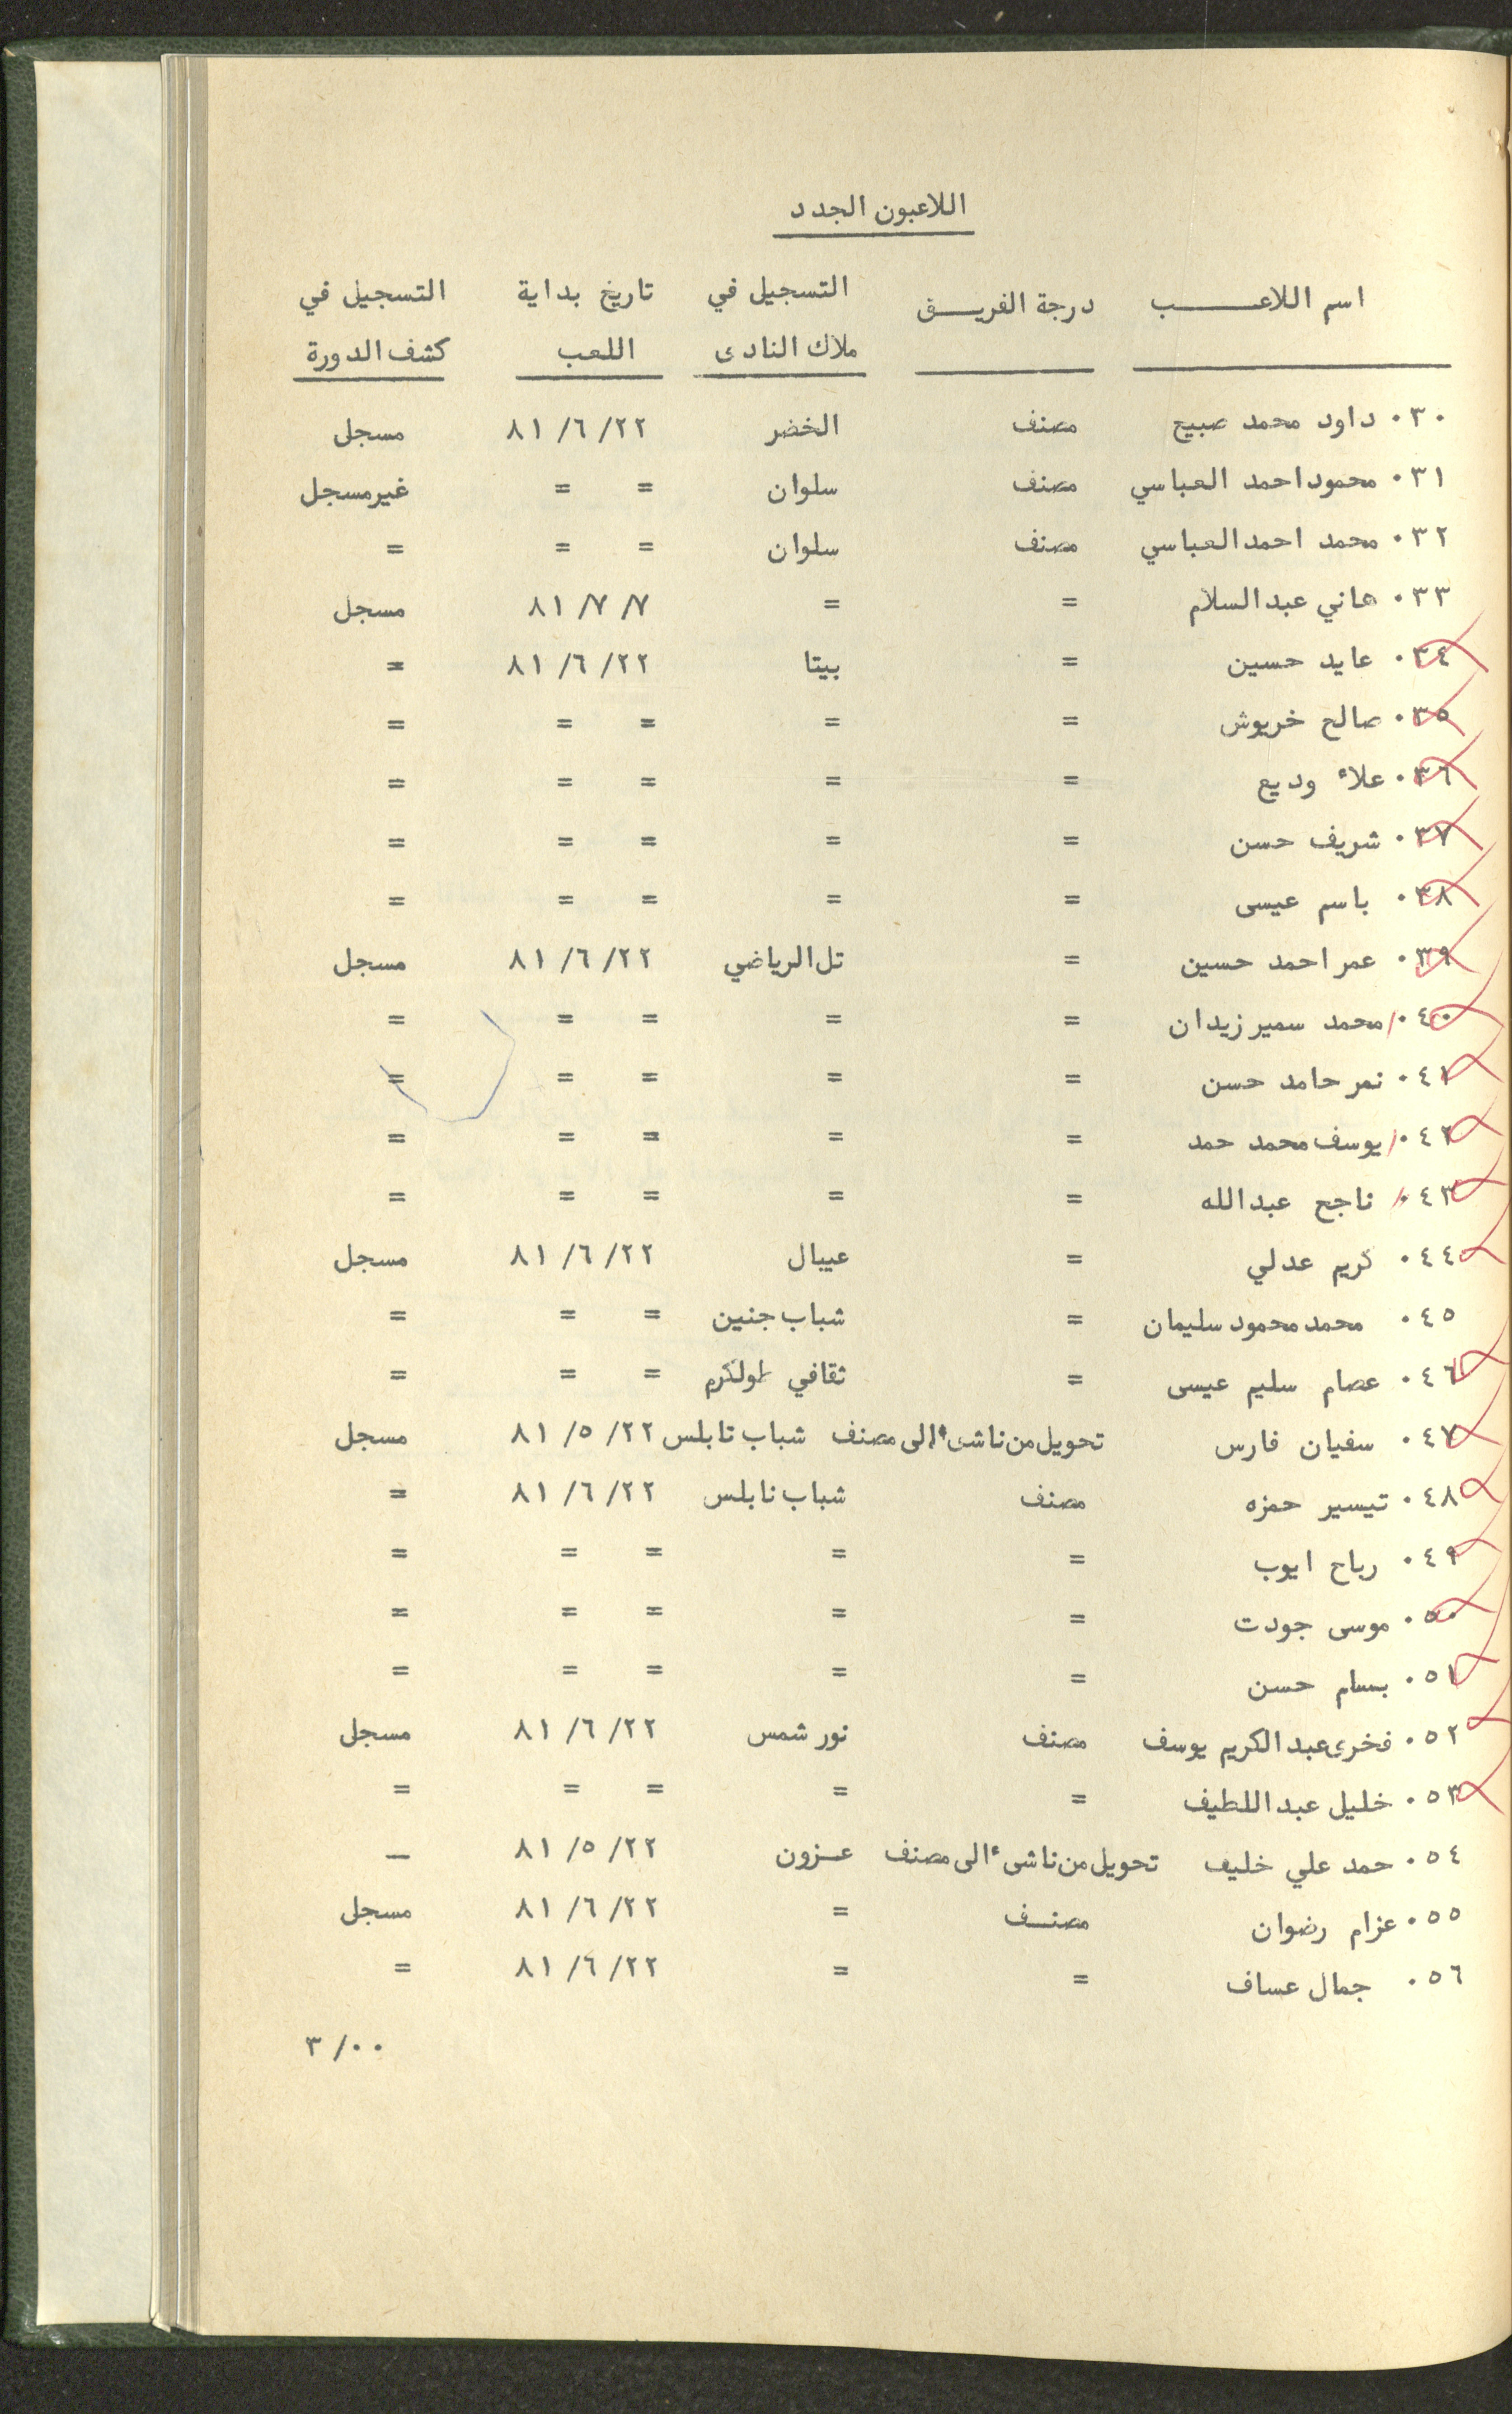 اللاعبون الجدد
اسم اللاعب درجة الفريق التسجيل في ملاك النادى تاريخ بداية اللعب التسجيل في كشف الدورة
٠٣٠ داود محمد صبيح مصنف الخضر ٨١/٦/٢٢ مسجل
٠٣١ محمود احمد العباسي مصنف سلوان = = غير مسجل
٠٣٢ محمد احمد العباسي مصنف سلوان = = =
٠٣٣ هاني عبد السلام = = ٨١/٧/٧ مسجل
٠٣٤ عايد حسين = بيتا ٨١/٦/٢٢ =
٠٣٥ صالح خريوش = = = = =
٠٣٦ علاء وديع = = = = =
٠٣٧ شريف حسن = = = = =
٠٣٨ باسم عيسى = = = = =
٠٣٩ عمر احمد حسين = تل الرياضي ٨١/٦/٢٢ مسجل
٠٤٠ محمد سمير زيدان = = = = =
٠٤١ نمر حامد حسن = = = = =
٠٤٢ يوسف محمد حمد = = = = =
٠٤٣ ناجح عبد الله = = = = =
٠٤٤ كريم عدلي = عيبال ٨١/٦/٢٢ مسجل
٠٤٥ محمد محمود سليمان = شباب جنين = = =
٠٤٦ عصام سليم عيسى = ثقافي طولكرم = = =
٠٤٧ سفيان فارس تحويل من ناشىء الى مصنف شباب نابلس ٨١/٥/٢٢ مسجل
٠٤٨ تيسير حمزه مصنف شباب نابلس ٨١/٦/٢٢ =
٠٤٩ رباح ايوب = = = = =
٠٥٠ موسى جودت = = = = =
٠٥١ بسام حسن = = = = =
٠٥٢ فخرى عبد الكريم يوسف مصنف نور شمس ٨١/٦/٢٢ مسجل
٠٥٣ خليل عبد اللطيف = = = = =
٠٥٤ حمد علي خليف تحويل من ناشىء الى مصنف عزون ٨١/٥/٢٢ —
٠٥٥ عزام رضوان مصنف = ٨١/٦/٢٢ مسجل
٠٥٦ جمال عساف = = ٨١/٦/٢٢ =
٣/٠٠